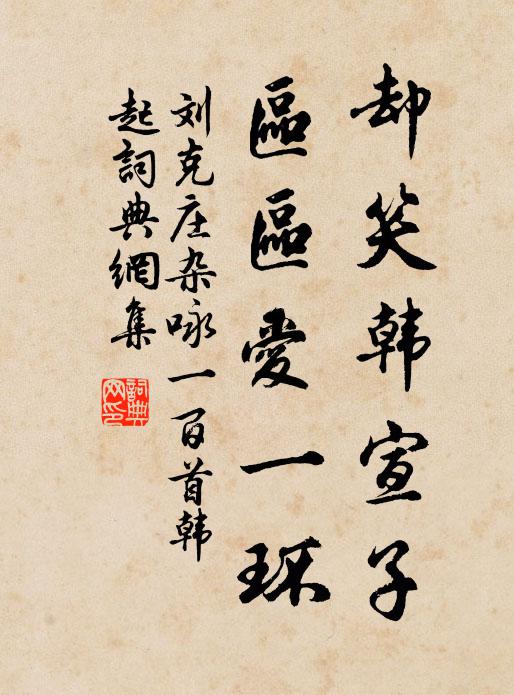 却笑韩宣子
區區愛一环
刘克庄杂咏一百首韩
起詞典網集
詞典
网印